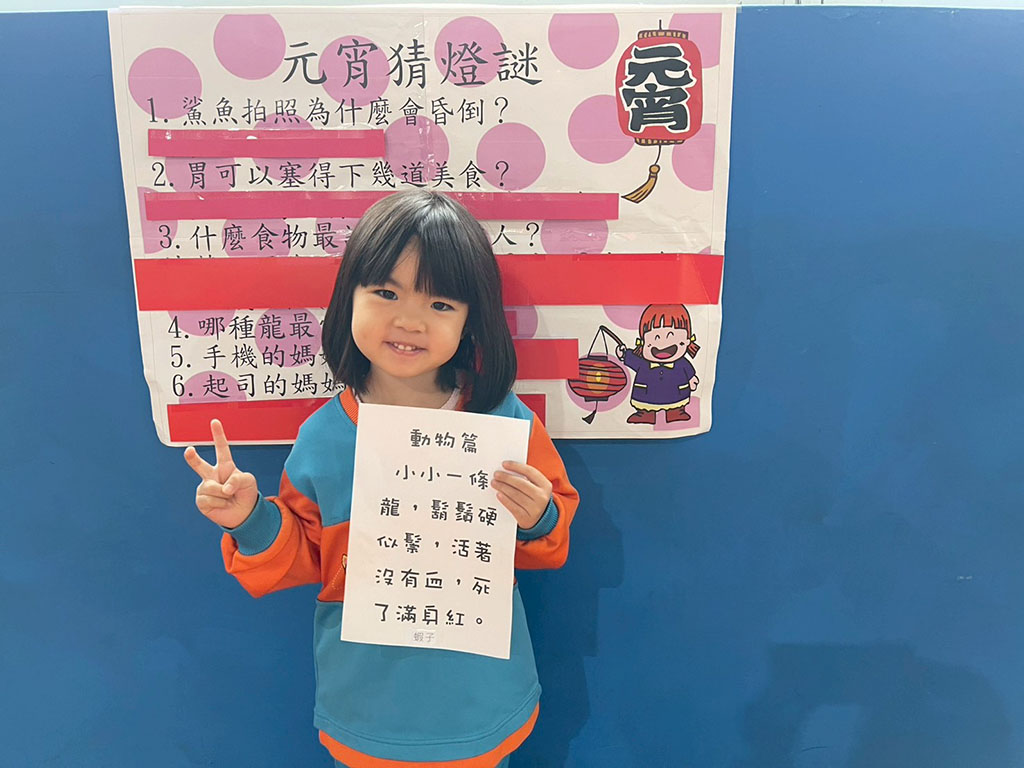 元宵猜燈謎
元宵
1.鯊魚拍照為什麼會昏倒？
2.胃可以塞得下幾道美食？
3.什麼食物最 人？
4.哪種龍最
5.手機的媽
6.起司的媽媽
動物篇
小小一條
龍，鬍鬚硬
似鬃，活著
沒有血，死
了滿身紅。
蝦子